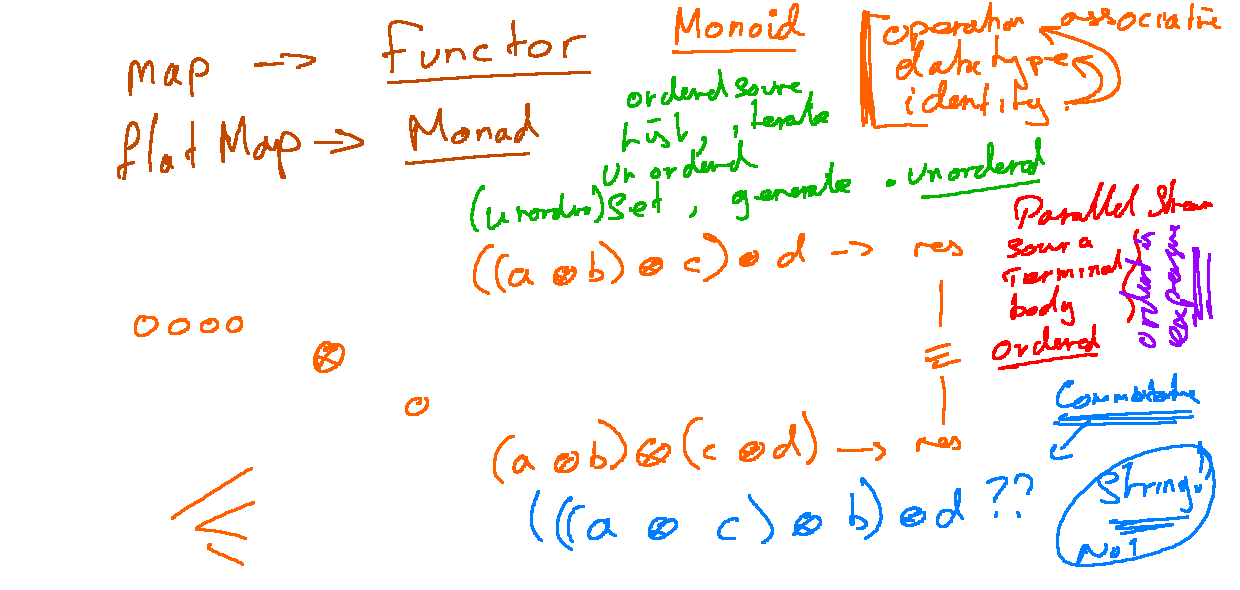 map → Functor
flatMap → Monad
Monoid
operation associative
datatype
identity
ordered source
List, iterate
unordered
(unordr) Set, generate . unordered
((a ⊗ b) ⊗ c) ⊗ d → res
≡
(a ⊗ b) ⊗ (c ⊗ d) → res
(((a ⊗ c) ⊗ b) ⊗ d ??
⊗
Parallel Stream
Source
Terminal
body
ordered
expensive
Commutative
String!
No!